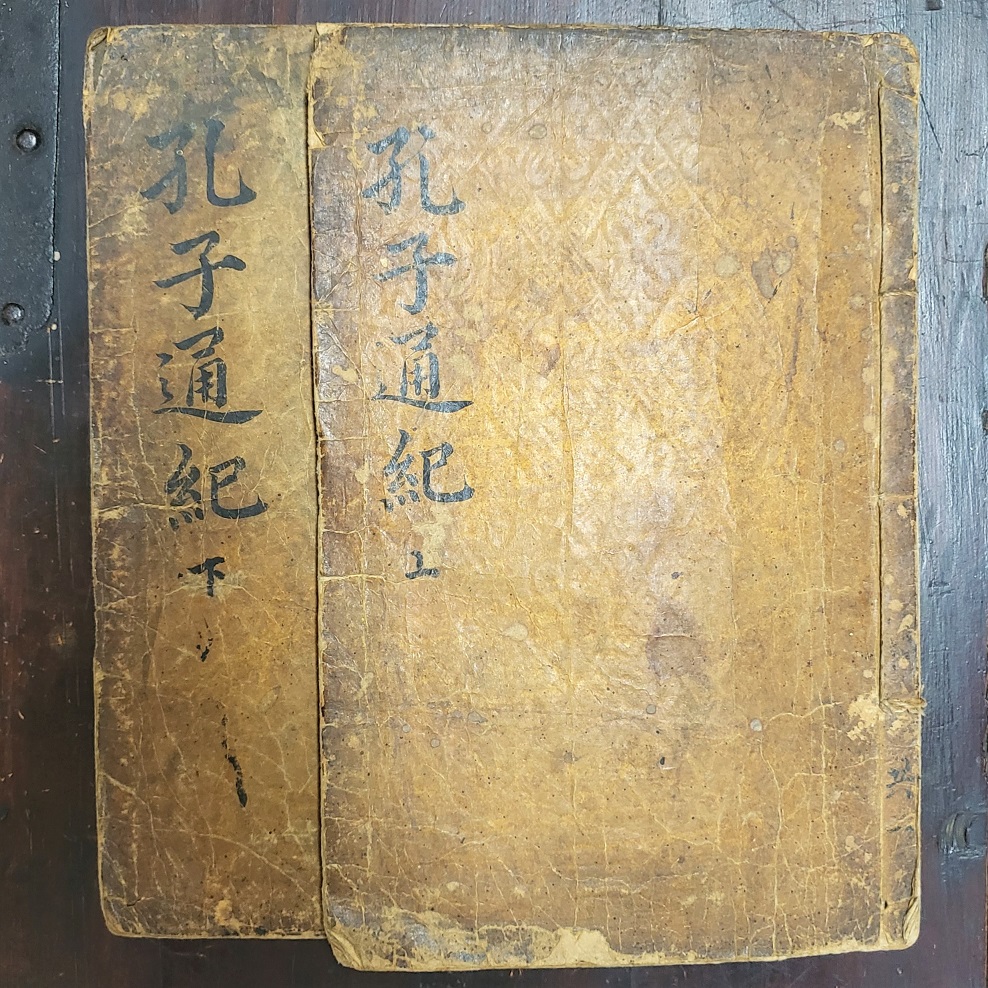 孔子通紀上
孔子通紀下